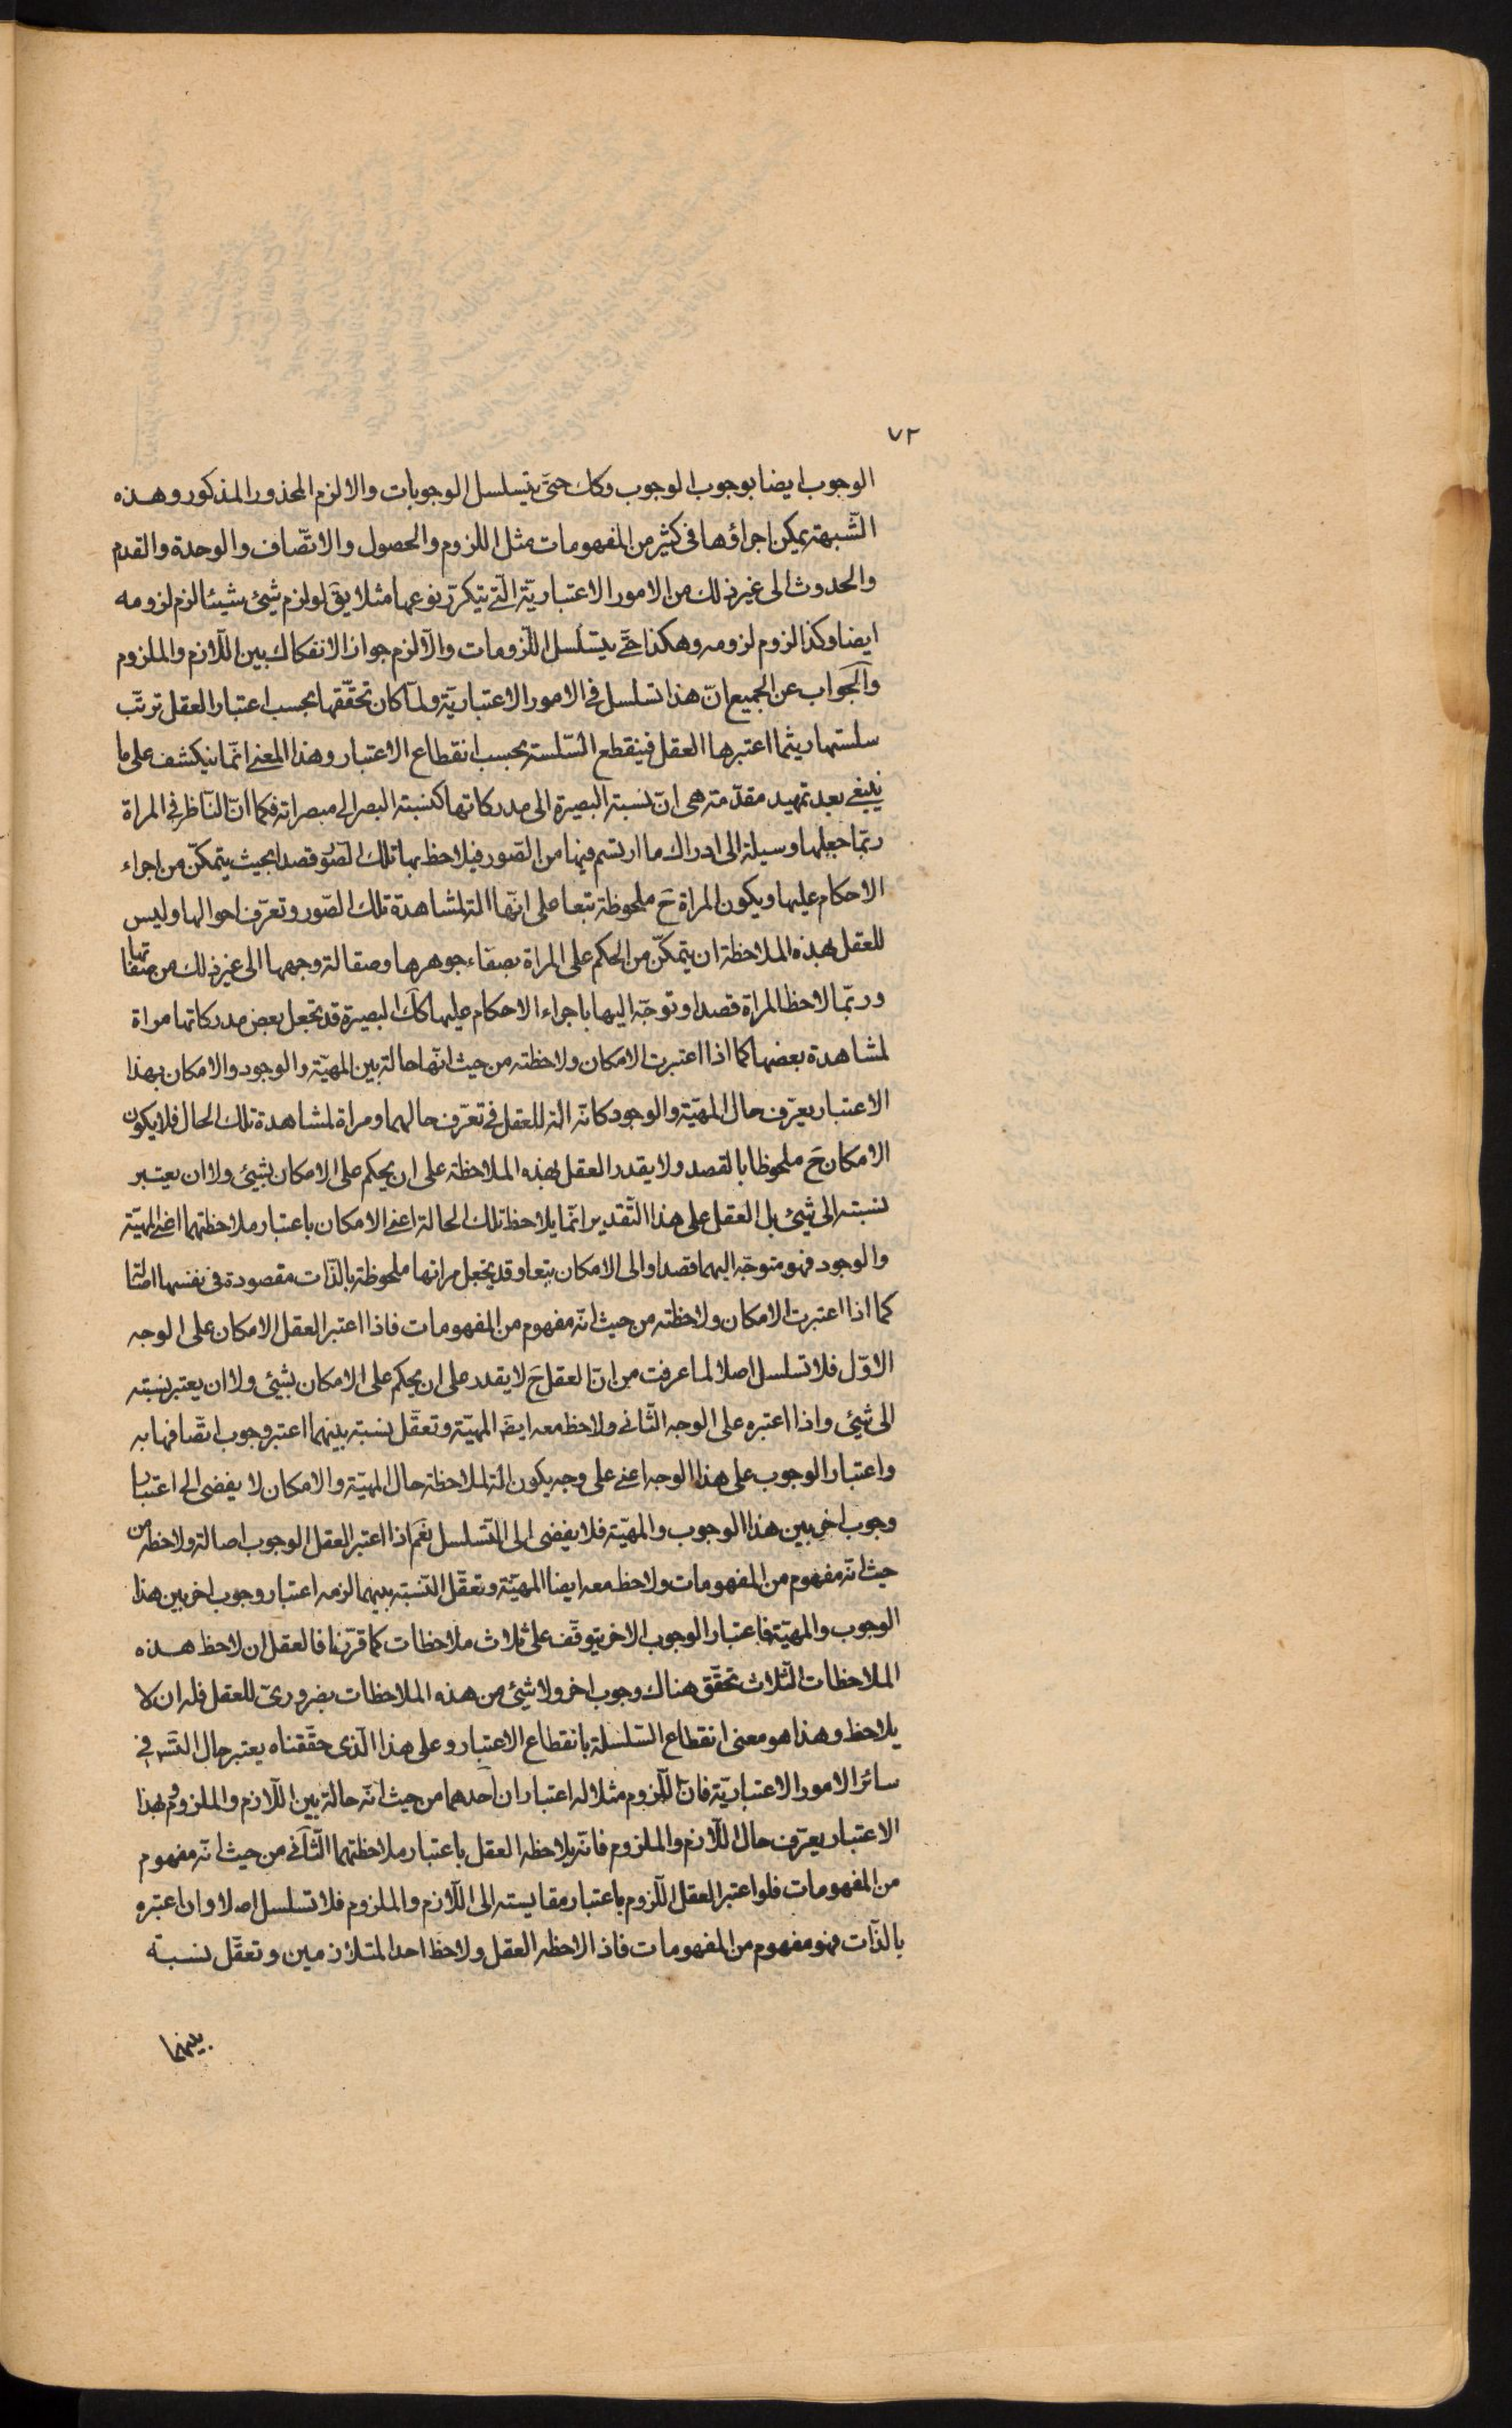 ٧٢
الوجوب ايضا بوجوب الوجوب وكك حتّى يتسلسل الوجوبات والا لزم المحذور المذكور وهذه
الشّبهة يمكن اجراؤها فى كثير من المفهومات مثل اللزوم والحصول والاتّصاف والوحدة والقدم
والحدوث الى غير ذلك من الامور الاعتباريّة الّتى يتكرّر نوعها مثلا يقَ لو لزم شيئ شيئا لزم لزومه
ايضا وكذا لزوم لزومه وهكذا حتّى يتسلسل اللّزومات والّا لزم جواز الانفكاك بين اللّازم والملزوم
والجواب عن الجميع انّ هذا تسلسل فى الامور الاعتباريّة ولمّا كان تحقّقها بحسب اعتبار العقل ترتّب
سلسلتها ريثما اعتبرها العقل فينقطع السّلسلة بحسب انقطاع الاعتبار وهذا المعنى انّما ينكشف على ما
ينبغى بعد تمهيد مقدّمة هى انّ نسبة البصيرة الى مدركاتها كنسبة البصر الى مبصراته فكما انّ النّاظر فى المراة
ربّما جعلها وسيلة الى ادراك ما ارتسم فيها من الصّور فيلاحظ بها تلك الصّور قصدا بحيث يتمكّن من اجراء
الاحكام عليها ويكون المراة حَ ملحوظة تبعا على انّها الة لمشاهدة تلك الصّور وتعرّف احوالها وليس
للعقل بهذه الملاحظة ان يتمكّن من الحكم على المراة بصفاء جوهرها وصقالة وجهها الى غير ذلك من صفاتها
وربّما لاحظ المراة قصدا وتوجّه اليها باجراء الاحكام عليها كك البصيرة قد تجعل بعض مدركاتها مراة
لمشاهدة بعضها كما اذا اعتبرت الامكان ولاحظته من حيث انّها حالة بين المهيّة والوجود والامكان بهذا
الاعتبار يعرّف حال المهيّة والوجود كانّه الة للعقل فى تعرّف حالهما ومراة لمشاهدة تلك الحال فلا يكون
الامكان حَ ملحوظا بالقصد ولا يقدر العقل بهذه الملاحظة على ان يحكم على الامكان بشيئ ولا ان يعتبر
نسبته الى شيئ بل العقل على هذا التّقدير انّما يلاحظ تلك الحالة اعنى الامكان باعتبار ملاحظتهما اعنى المهيّة
والوجود فهو متوجّه اليهما قصدا والى الامكان تبعا وقد يجعل مراتها ملحوظة بالذّات مقصودة فى نفسها
كما اذا اعتبرت الامكان ولاحظته من حيث انّه مفهوم من المفهومات فاذا اعتبر العقل الامكان على الوجه
الاوّل فلا تسلسل اصلا لما عرفت من انّ العقل حَ لا يقدر على ان يحكم على الامكان بشيئ ولا ان يعتبر نسبته
الى شيئ واذا اعتبره على الوجه الثّانى ولاحظ معه ايضَ المهيّة وتعقّل نسبته بينهما اعتبر وجوب اتّصافها به
واعتبار الوجوب على هذا الوجه اعنى على وجه يكون الة لملاحظة حال المهيّة والامكان لا يفضى الى اعتبار
وجوب اخر بين هذا الوجوب والمهيّة فلا يفضى الى التّسلسل نعَم اذا اعتبر العقل الوجوب اصالة ولاحظه من
حيث انّه مفهوم من المفهومات ولاحظ معه ايضا المهيّة وتعقّل النّسبة بينهما لزمه اعتبار وجوب اخر بين هذا
الوجوب والمهيّة فاعتبار الوجوب الاخر يتوقّف على ثلاث ملاحظات كما قرّرنا فالعقل ان لاحظ هذه
الملاحظات الثّلاث تحقّق هناك وجوب اخر ولا شيئ من هذه الملاحظات بضرورىّ للعقل فله ان لا
يلاحظ وهذا هو معنى انقطاع السّلسلة بانقطاع الاعتبار وعلى هذا الّذى حقّقناه يعتبر حال التّسَه فى
سائر الامور الاعتباريّة فانّ اللّزوم مثلا له اعتباران احدهما من حيث انّه حالة بين اللّازم والملزوم فهو بهذا
الاعتبار يعرّف حال اللّازم والملزوم فانّه يلاحظه العقل باعتبار ملاحظتهما الثّانى من حيث انّه مفهوم
من المفهومات فلو اعتبر العقل اللّزوم باعتبار مقايسته الى اللّازم والملزوم فلا تسلسل اصلا وان اعتبره
بالذّات فهو مفهوم من المفهومات فاذا لاحظه العقل ولاحظ احد المتلازمين وتعقّل نسبة
بينهما